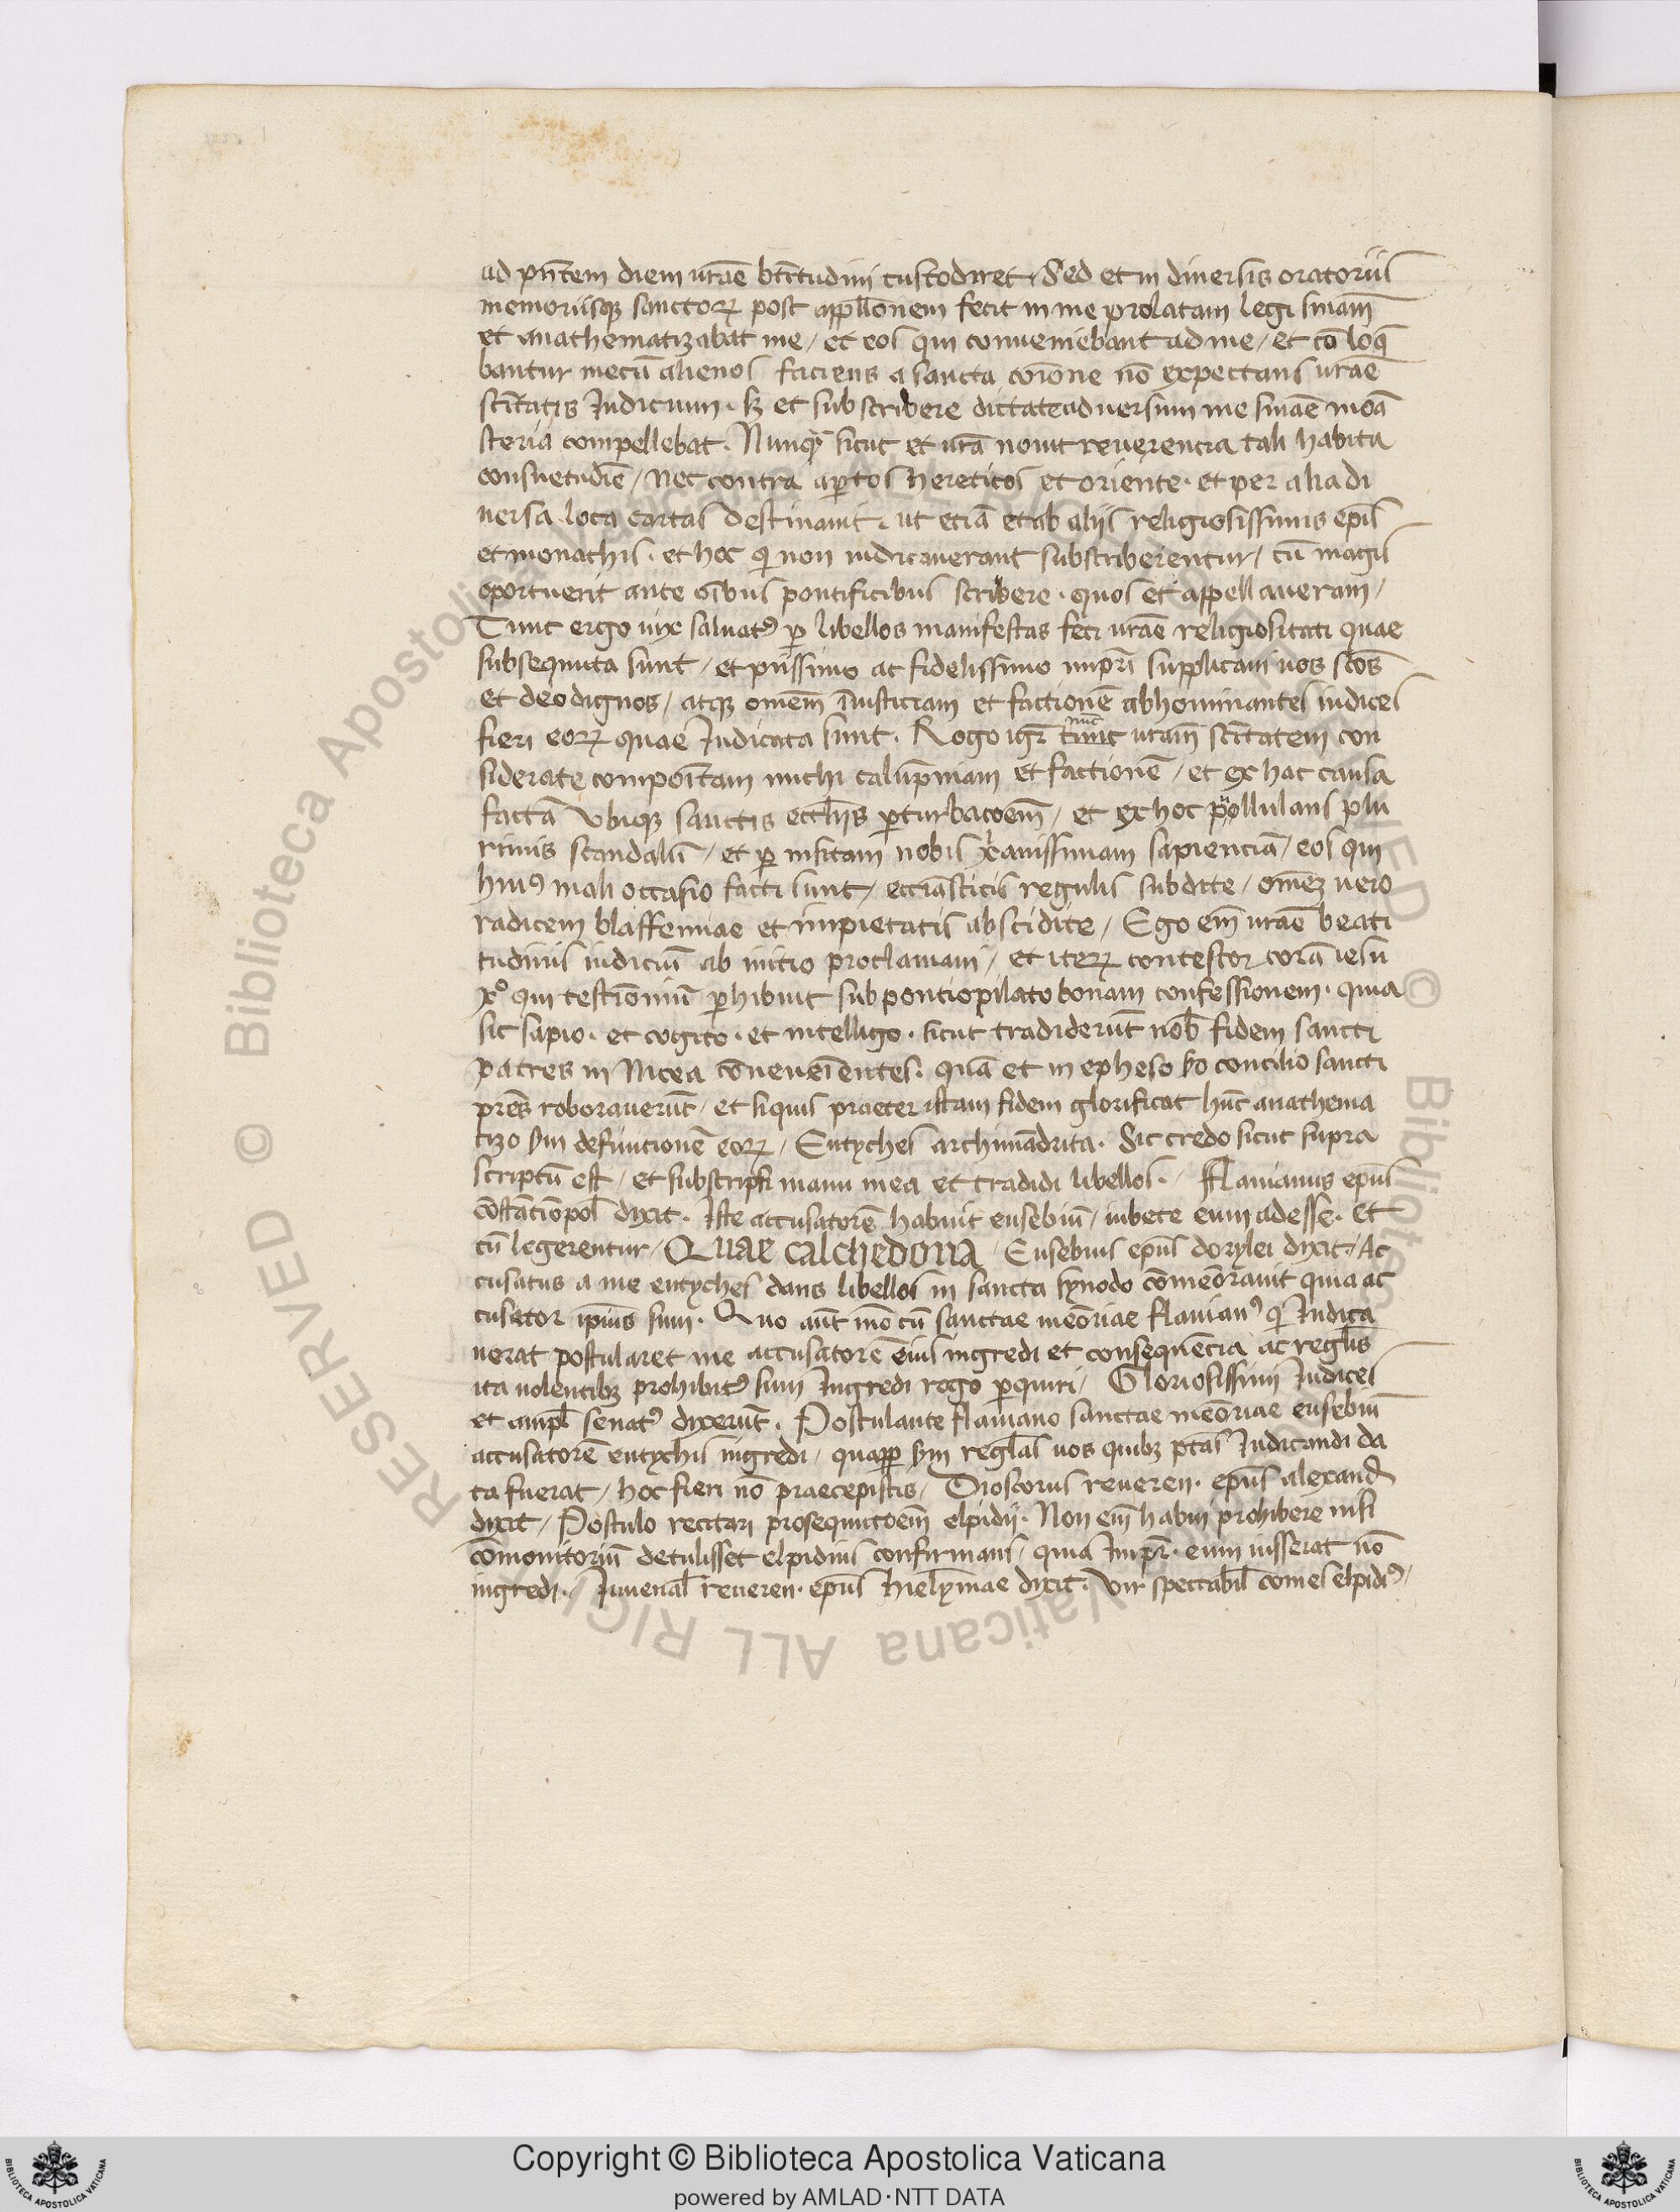 ad pn̄tem diem urāe btītudini custodiret / Sed et in diuersis oratoriis
memoriisqꝫ sanctoꝝ post appłlōnem fecit in me prolatam legi sniām
et anathematizabat me / et eos qui conueniebant ad me / et cō loq̄
bantur mecū alienos faciens a sancta cōiōne nō expectans urāe
sctītatis Iudicium · sꝫ et subscribere dictate aduersum me sniāe mōa
steria compellebat · Nunqꝫ sicut et urā nouit reuerencia tali habita
consuetudīe / nec contra aꝑtos hereticos et oriente · et per alia di
uersa loca cartas destinauit · ut eciā et ab aliis religiosissimis epīs
et monachis · et hoc qi non iudicauerant subscriberentur / cū magis
oportuerit ante oībus pontificibus scribere · quos et appellaueram /
Tunc ergo uix saluatꝰ ꝑ libellos manifestas feci urāe religiositati quae
subsequuta sunt / et piissimo ac fidelissimo impri supplicaui uos scōs
et deo dignos / atqꝫ omēm Iniusticiam et factionē abhominantes iudices
fieri eoꝝ quae Iudicata sunt · Rogo igr̄ tunc nūc uram̄ sctītatem con
siderate compoītam michi calūpniam et factionē / et ex hac causa
factā Vbiqꝫ sanctis eccłiis ꝑturbacōem̄ / et ex hoc pullulans plu
rimis scandalū / et ꝑ insitam nobis xr̄anissimam sapienciā / eos qui
huiꝰ mali occasio facti sunt / ecciāsticis regulis subdite / omēꝫ uero
radicem blaffemiae et impietatis abscidite / Ego em̄ urāe beati
tudinis iudiciū ab initio proclamaui / et iteꝝ contestor corā iesu
xo qui testīoniū ꝑhibuit sub pontio pilato bonam confessionem · quia
sic sapio · et cogito · et intelligo · sicut tradiderūt nob̄ fidem sancti
patres in Nicea cōueneīentes · quā et in epheso so concilio sancti
prēs roborauerūt / et siquis praeter istam fidem glorificat hūc anathema
tizo sm defunctionē eoꝝ / Eutyches archimādrita · Sic credo sicut supra
scriptū est / et subscripsi manu mea et tradidi libellos · / Flauianus epūs
cōstātiōpoł dixit · Iste accusatorē habuit eusebiū / iubete eum adesse · Et
cū legerentur / QUae calchedona / Eusebius epūs dorylei dixit / Ac
cusatus a me eutyches dans libellos in sancta synodo cōmeōrauit quia ac
cusator ipīus sum · Quo aūt mō cū sanctae meōriae flauianꝰ qi Iudica
uerat postularet me accusatorē eius ingredi et consequēcia ac regłis
ita uolentibꝫ prohibitꝰ sum Ingredi rogo ꝑquiri / Gloriosissimi Iudices
et ampł senatꝰ dixerūt · Postulante flauiano sanctae meōriae eusebiū
accusatorē eutychis ingredi / quaꝓꝑ sm regłas uos quibꝫ ptās Iudicandi da
ta fuerat / hoc fieri nō praecepistis / Dioscorus reueren · epūs alexand
dixit / Postulo recitari prosequutōem̄ elpidii · Non em̄ habui prohibere nisi
cōmonitoriū detulisset elpidius confirmans / quia Impr · eum iusserat nō
ingredi · / Iuuenał reueren · epūs Hielȳmae dixit · Vir spectabił comes elpidiꝰ /
© Biblioteca Apostolica Vaticana ALL RIGHTS RESERVED
Copyright © Biblioteca Apostolica Vaticana
powered by AMLAD·NTT DATA
BIBLIOTECA APOSTOLICA VATICANA
BIBLIOTECA APOSTOLICA VATICANA